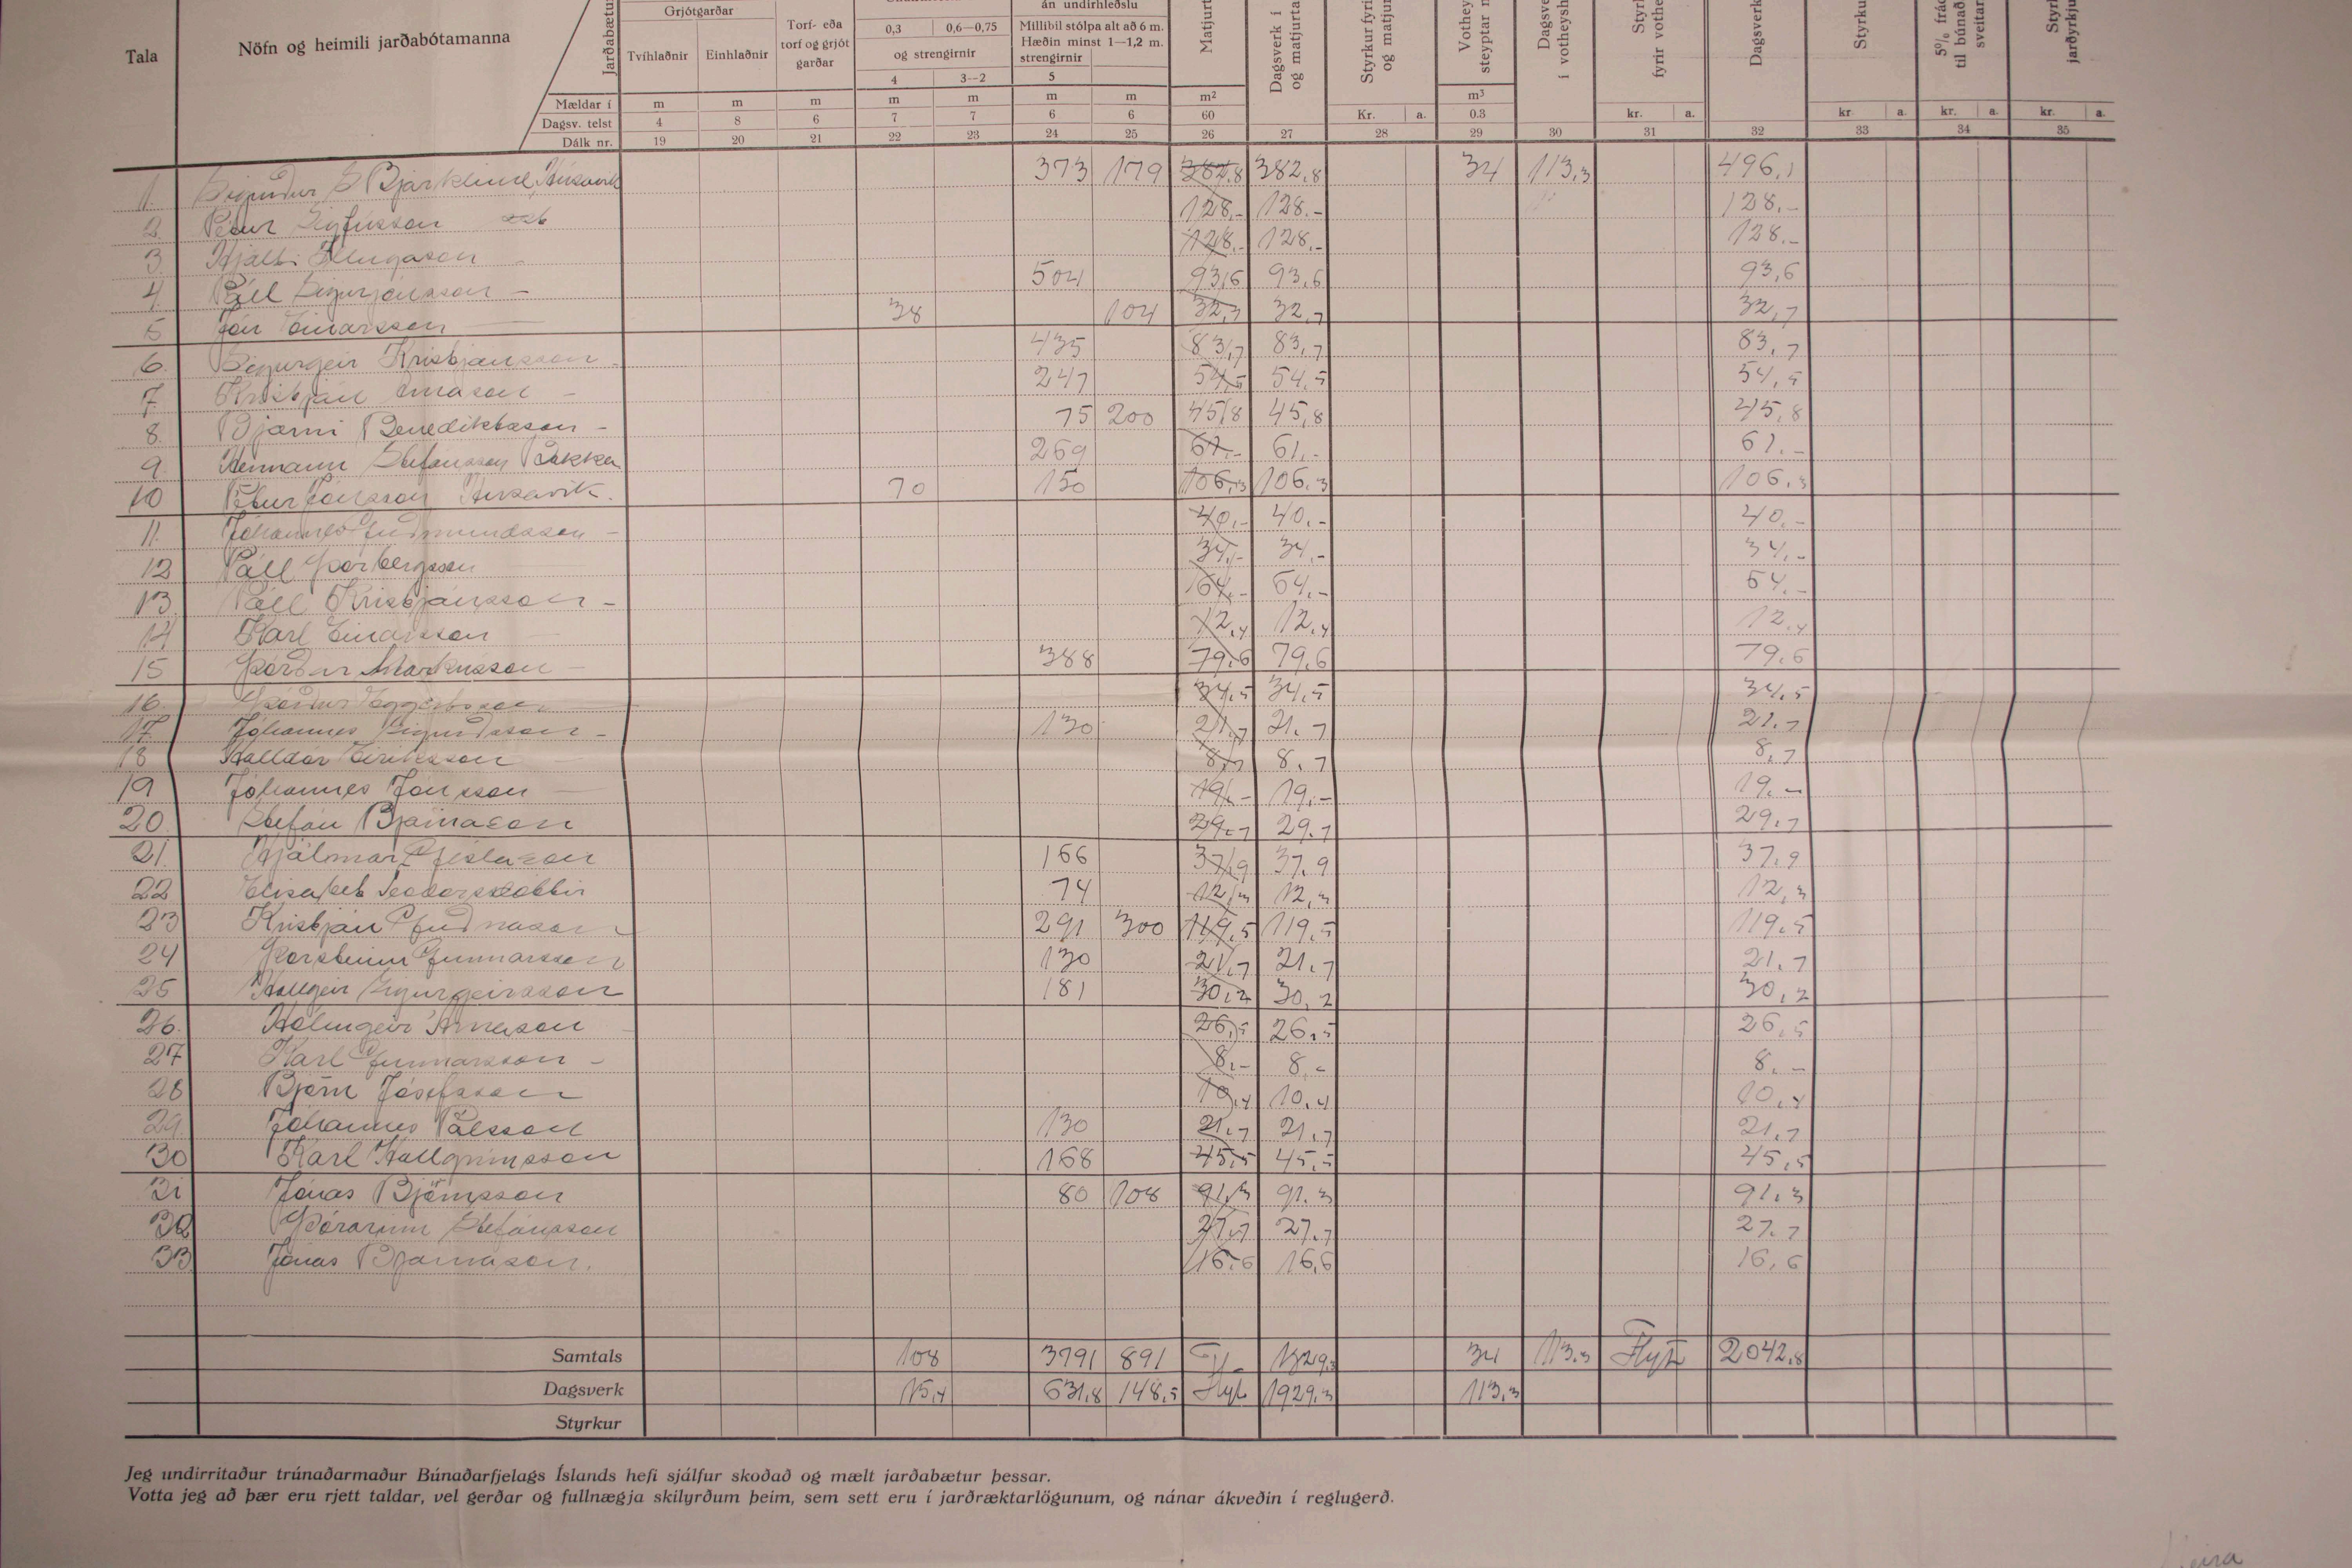 Tala Nöfn og heimili jarðabótamanna Jarðabætur Grjótgarðar Torf- eða torf og grjót garðar án undirhleðslu
Tvíhlaðnir Einhlaðnir 0,3 0,6—0,75 og strengirnir Millibil stólpa alt að 6 m. Hæðin minst 1—1,2 m. strengirnir
4 3—2 5
Mældar í m m m m m m m m² m³
Dagsv. telst 4 8 6 7 7 6 6 60 Kr. a. 0.3 kr. a. kr. a. kr. a. kr. a.
Dálk nr. 19 20 21 22 23 24 25 26 27 28 29 30 31 32 33 34 35
1 Bjarklind Húsavík 373 179 382,8 382,8 34 113,3 496,1
2 Pétur Sigfússon 128,- 128.- 128.-
3 Hjálti Illugason 128.- 128.- 128.-
4. Páll Sigurjónsson - 504 93,6 93,6 93,6
5 Jón Einarsson 38 104 32,7 32,7 32,7
6. Sigurgeir Kristjánsson 435 83,7 83,7 83,7
7. Kristján 247 54,5 54,5 54,5
8. Bjarni Benediktsson - 75 200 45,8 45,8 45,8
9. Hermann Stefánsson Bakka 269 61.- 61.- 61.-
10 Pétur Jónsson Húsavík. 70 150 106,3 106.3 106.3
11. Jóhannes Guðmundsson - 40.- 40.- 40.-
12 Páll Þórbergsson 34,- 34.- 34.-
13. Páll Kristjánsson - 64.- 64.- 64.-
14 Karl Einarsson 12,4 12,4 12,4
15 Þórður Markússon - 388 79,6 79,6 79,6
16. Þórður Eggertsson 34,5 34,5 34,5
17 Jóhannes Sigurðsson - 130 21,7 21.7 21.7
18 Halldór Eiríksson 8,7 8.7 8.7
19 Jóhannes Jónsson 19.- 19.- 19.-
20. Stefán Bjarnason 29.7 29.7 29.7
21. Hjálmar Gíslason 166 37,9 37.9 37.9
22 Elísabet 74 12,3 12,3 12,3
23 Kristján Guðnason 291 300 119,5 119.5 119.5
24 Þorsteinn Gunnarsson 130 21,7 21.7 21.7
25 Hallgeir Sigurgeirsson 181 30,2 30,2 30,2
26. Hólmgeir Árnason 26,5 26,5 26,5
27 Karl Gunnarsson - 8.- 8.- 8.-
28 Björn Jósefsson 10,4 10.4 10.4
29 Jóhannes Pálsson 130 21.7 21.7 21.7
30 Karl Hallgrímsson 168 45,5 45.5 45.5
31 Jónas Björnsson 80 108 91.3 91.3 91.3
32 Þórarinn Stefánsson 27.7 27.7 27.7
33 Jónas Bjarnason. 16.6 16,6 16,6
Samtals 108 3791 891 1929,3 34 113.3 Flyt 2042,8
Dagsverk 15,4 631,8 148,5 Flyt 1929,3 113,3
Styrkur
Jeg undirritaður trúnaðarmaður Búnaðarfjelags Íslands hefi sjálfur skoðað og mælt jarðabætur þessar.
Votta jeg að þær eru rjett taldar, vel gerðar og fullnægja skilyrðum þeim, sem sett eru í jarðræktarlögunum, og nánar ákveðin í reglugerð.